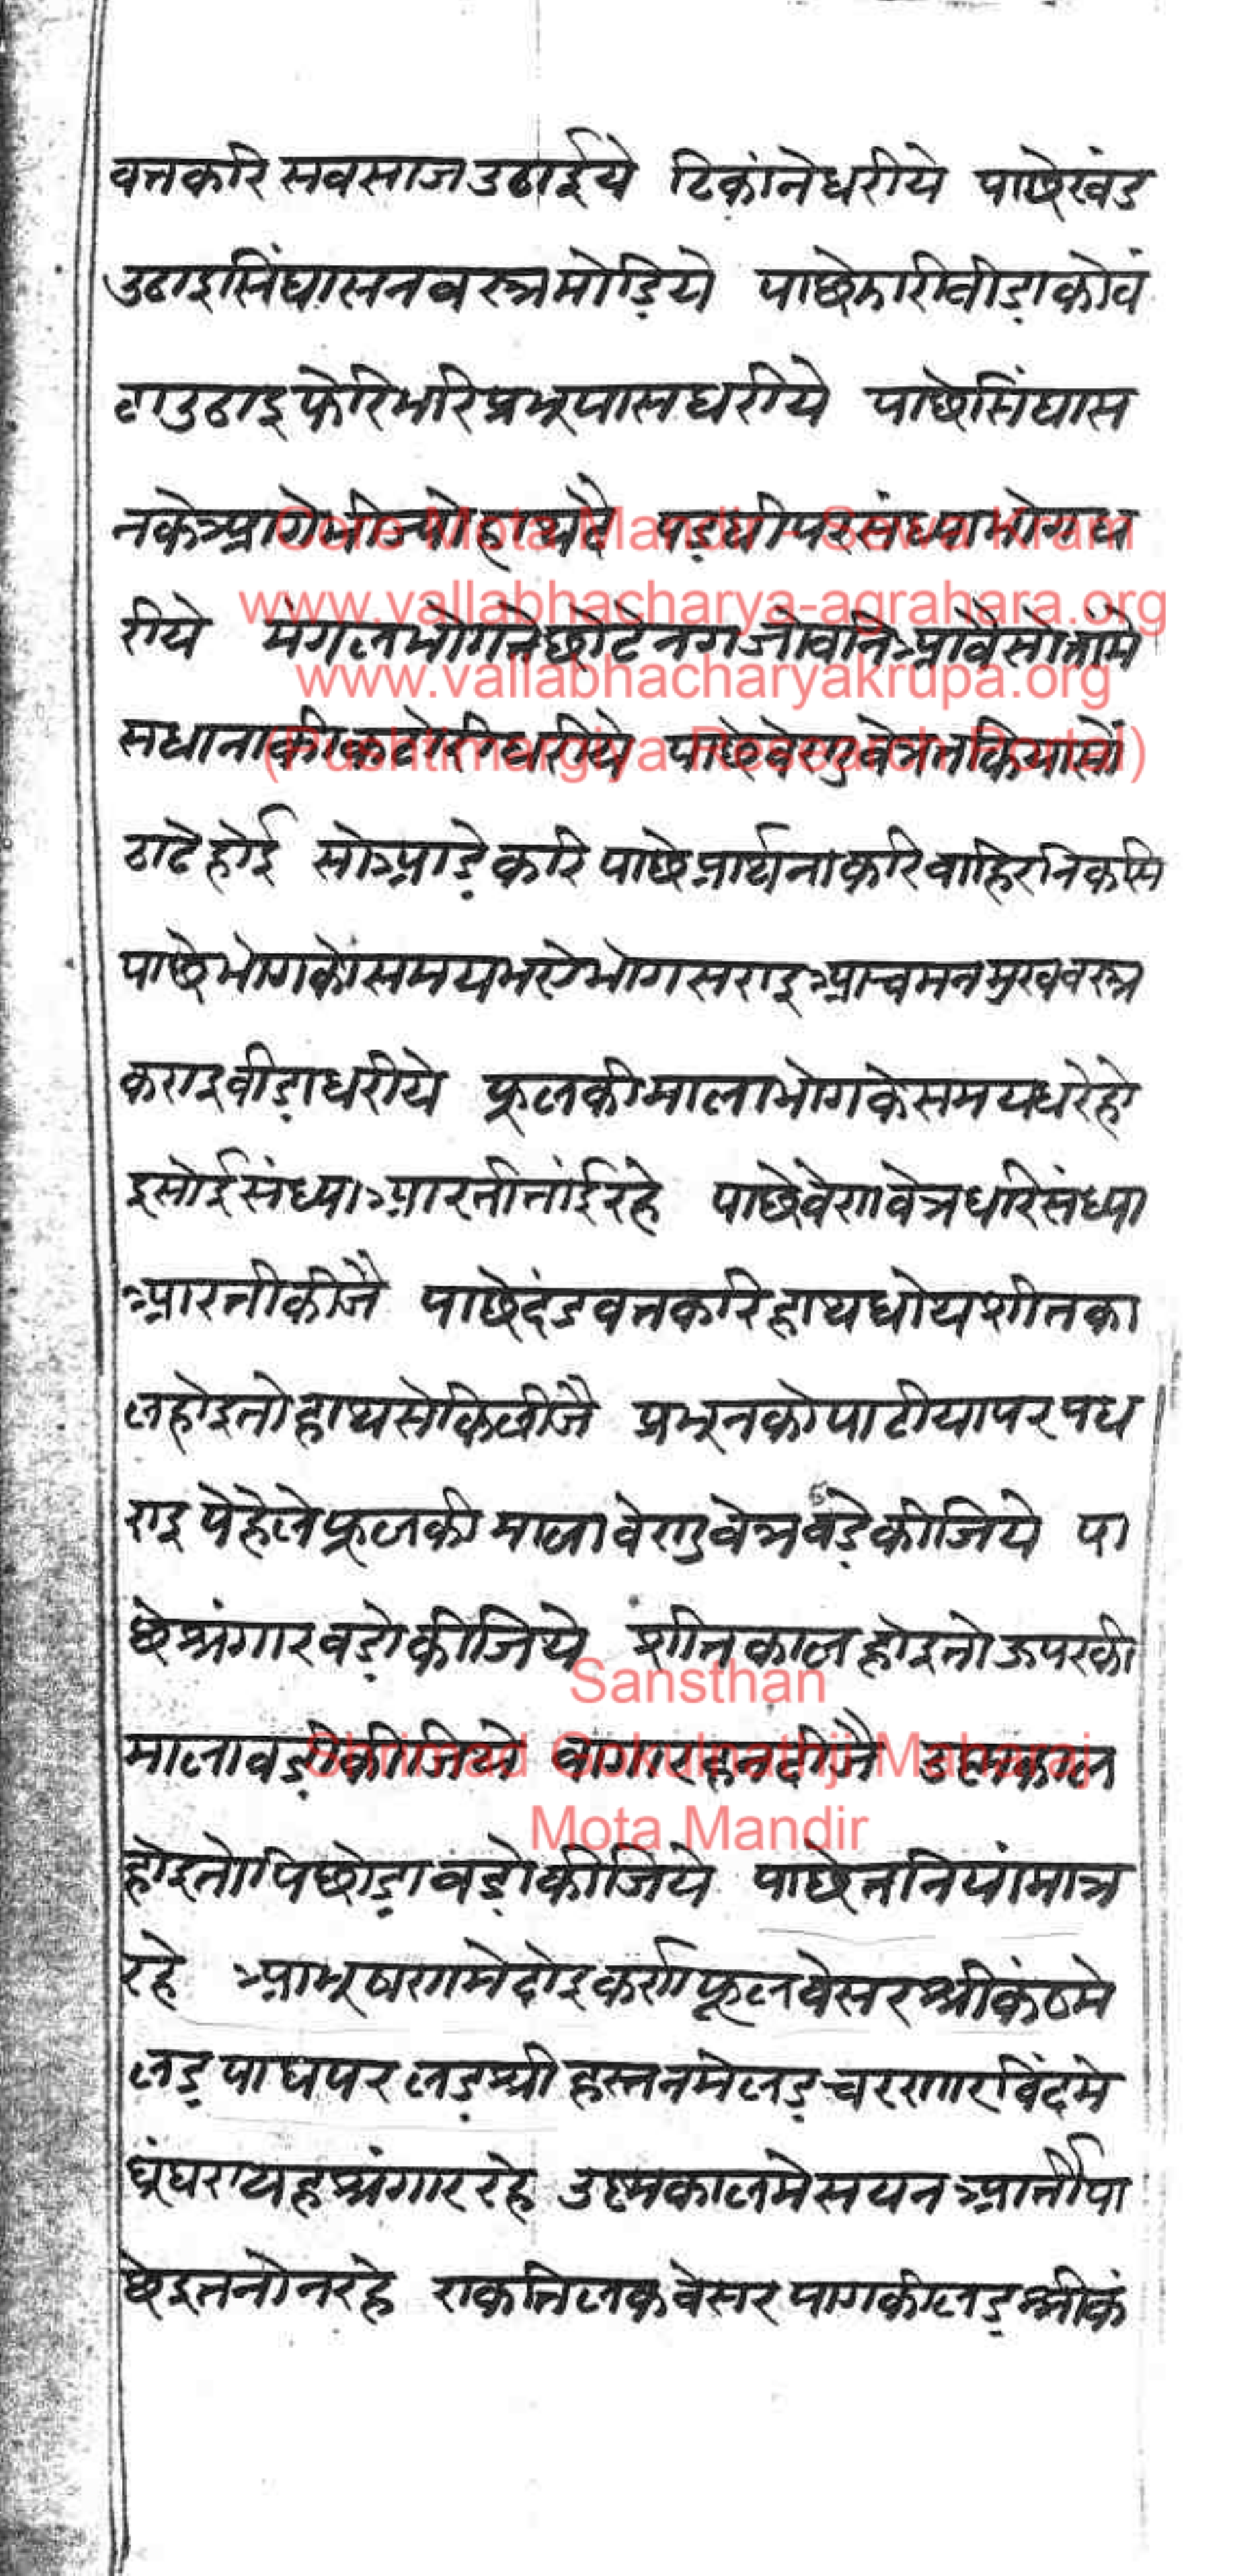 वतकरि सवसाज उठाईये ठिकांनेधरीये पाछेखंड
उठाइसिंघासनवस्त्रमोड़िये पाछेझारीवीड़ाकोवं
टाउठाइफेरिभरिप्रभूपासधरीये पाछेसिंघास
नकेआगे पड़घीपरसंध्याभोगध
रीये मंगलभोगते छोटेनगजोवनिआवैसोतामे
सधानाकीकटोरीधरीये पाछेवेणुवेत्रतकियासों
ठाढेहोई सोआड़ेकरि पाछेप्रार्थनाकरिवाहिरनिकसि
पाछेभोगकोसमयभएभोगसराइआचमनमुखवस्त्र
कराइवीड़ाधरीये फूलकीमालाभोगकेसमयधरेहो
इसोईसंध्याआरतीतांईरहे पाछेवेणवेत्रधरिसंध्या
आरतीकीजै पाछेदंडवतकरिहाथधोयशीतका
लहोइतोहाथसेकिलीजै प्रभूनकोपाटीयापरपध
राइ पेहेलेफूलकी मालावेणुवेत्रवड़ेकीजिये पा
छेश्रंगारवड़ोकीजिये शीतकालहोइतोऊपरकी
मालावड़ीकीजिये वागारहनदीजै उष्मकाल
होइतोपिछोड़ावड़ोकीजिये पाछेतनियांमात्र
रहे आभूषणमेदोइकर्णफूलवेसरश्रीकंठमे
लड़ पाघपर लड़श्री हस्तनमेलड़चरणारविंदमे
घूंघरायहश्रंगाररहे उष्मकालमेसयनआर्तीपा
छेइतनोनरहे एकतिलकवेसरपागकीलड़श्रीकं
Core Mota Mandir - Sewa Kram
www.vallabhacharya-agrahara.org
www.vallabhacharyakrupa.org
(Pushtimargiya Research Portal)
Sansthan
Shrimad Gokulnathji Maharaj
Mota Mandir